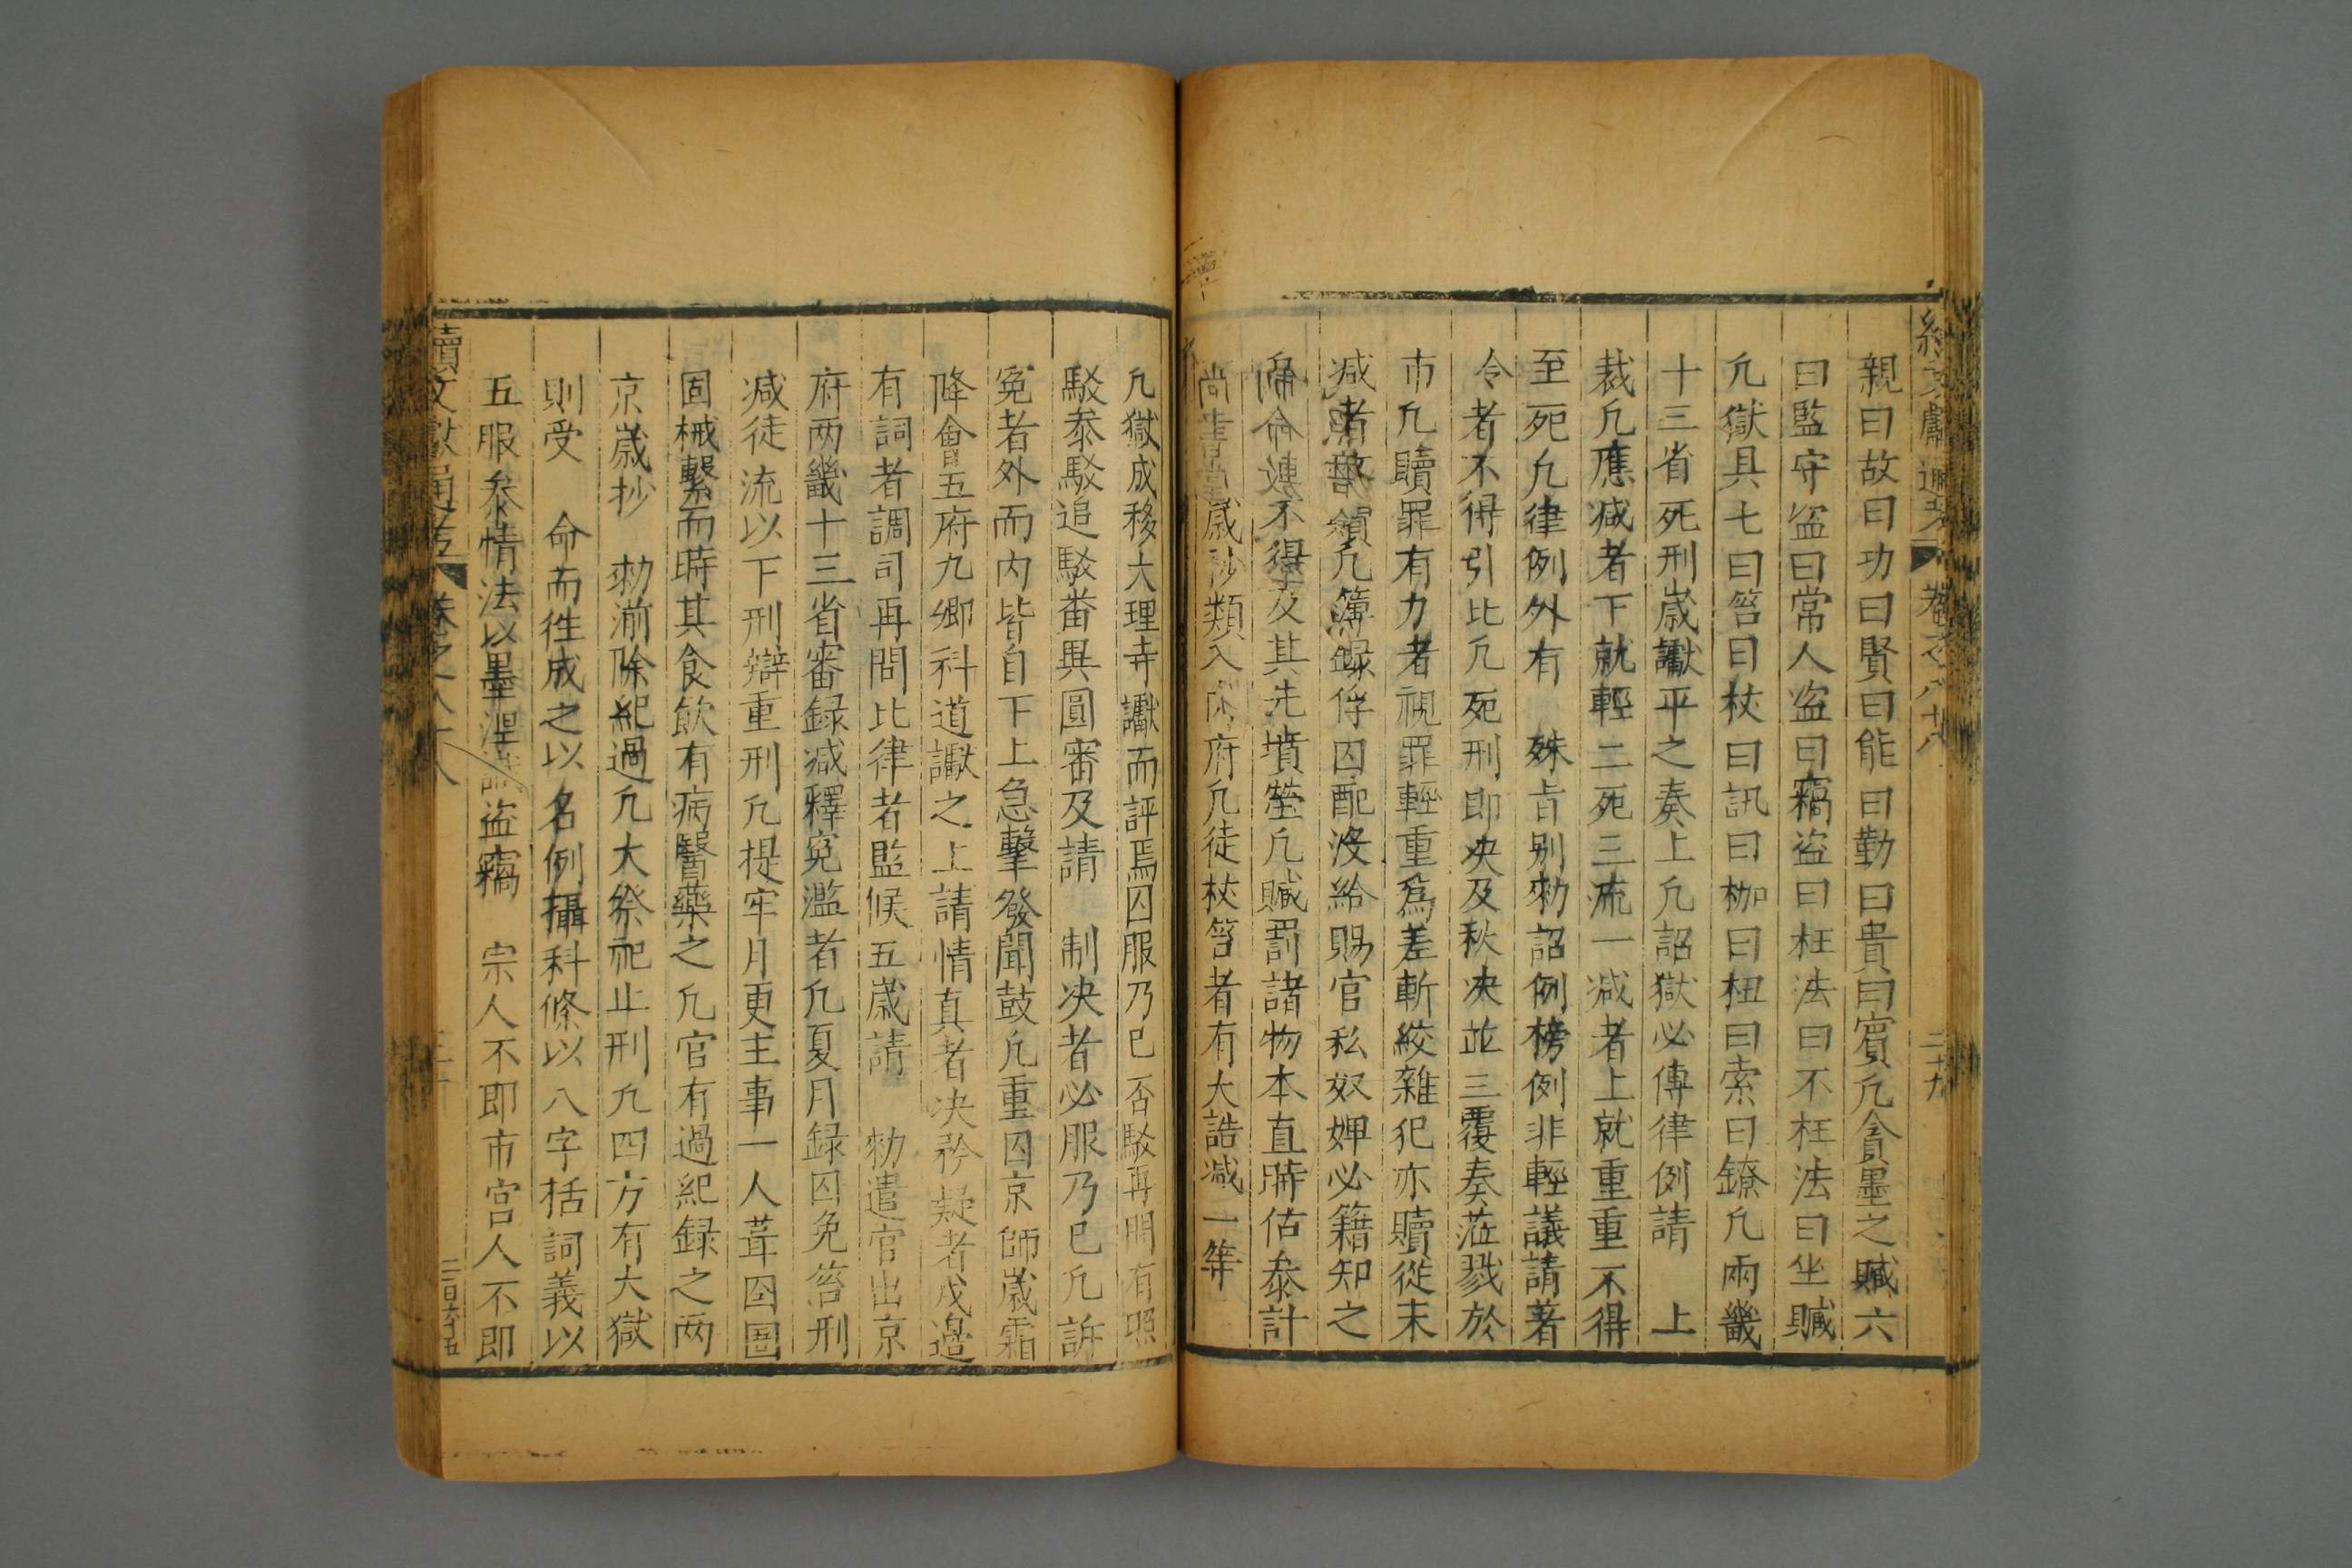 續文獻通考 卷之八十八 二十九
親曰故曰功曰賢曰能曰勤曰貴曰賓凢貪墨之贓六
曰監守盜曰常人盜曰竊盜曰枉法曰不枉法曰坐贓
凢獄具七曰笞曰杖曰訊曰枷曰杻曰索曰鐐凢兩畿
十三省死刑歲讞平之奏上凢詔獄必傳律例請 上
裁凢應减者下就輕二死三流一减者上就重重不得
至死凢律例外有 殊旨别勅詔例榜例非輕議請著
令者不得引比凢死刑即决及秋决並三覆奏涖戮於
市凢贖罪有力者視罪輕重爲差斬絞雜犯亦贖從末
减者凢簿録俘囚配没給賜官私奴婢必籍知之
不得及其先墳塋凢贓罰諸物本直時估泰計
歲抄類入府凢徒杖笞者有大誥减一等
凢獄成移大理寺讞而評焉囚服乃已否駁再問有照
駁泰駁追駁番異圓審及請 制决者必服乃已凢訴
寃者外而内皆自下上急擊登聞鼓凢重囚京師歲霜
降會五府九卿科道讞之上請情真者决矜疑者戍邉
有詞者調司再問比律者監候五歲請 勅遣官出京
府两畿十三省審録减釋寃濫者凢夏月録囚免笞刑
减徒流以下刑辯重刑凢提牢月更主事一人葺囹圄
固械繫而時其食飲有病醫藥之凢官有過紀録之两
京歲抄 勅湔除紀過凢大祭祀止刑凢四方有大獄
則受 命而徃成之以名例攝科條以八字括詞義以
五服泰情法以墨涅識盜竊 宗人不即市宫人不即
續文獻通考 卷之八十八 三十